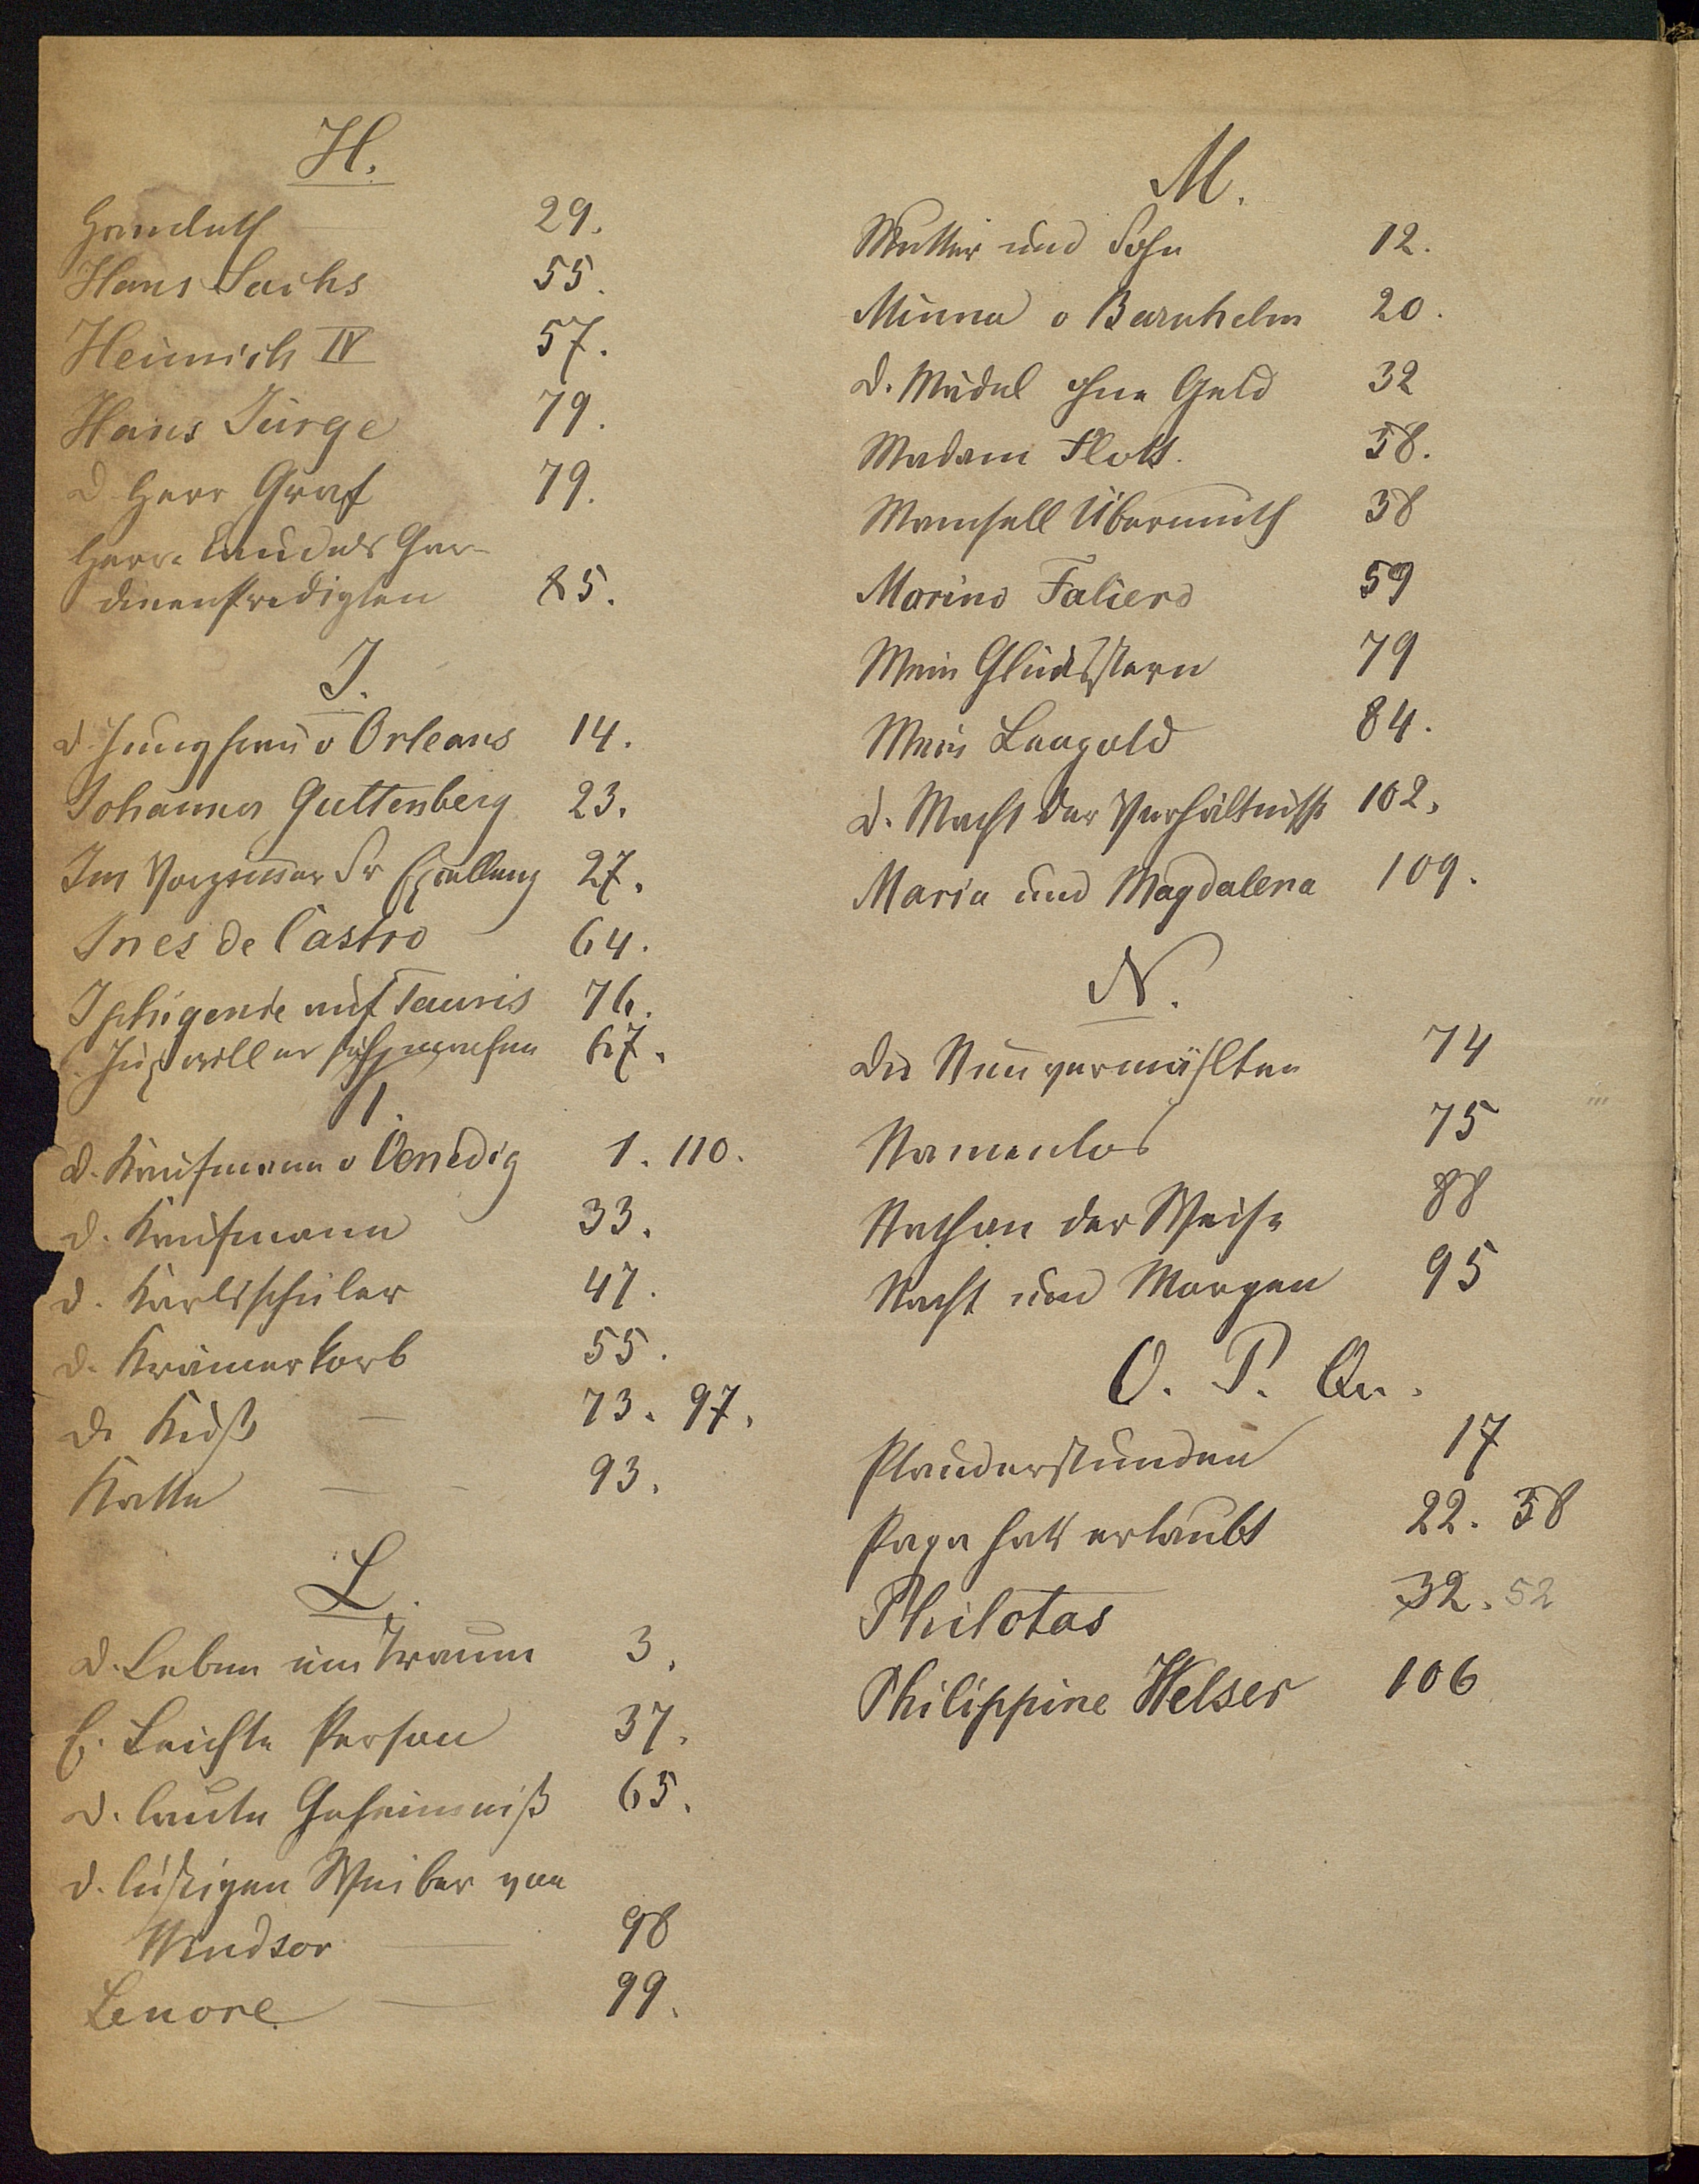 H.
Hamleth 29.
Hans Sachs 55.
Heinrich IV 57.
Hans Jürge 79.
D Herr Graf 79.
Herr Caudels Gar-
dinenpredigten 85.
J.
d. Jungfrau v Orleans 14.
Johannes Guttenberg 23.
Im Vorzimer Sr Excellenz 27.
Ines de Castro 64.
Iphigenie auf Tauris 76.
Jux will er sich machen 67.
K.
d. Kaufmann v Venedig 1. 110.
d. Kaufmann 33.
d. Karlsschüler 47.
d. Krämerkorb 55.
d. Kuß — 73. 97.
Katte — - 93.
L.
d. Leben ein Traum 3.
E. Leichte Person 37.
d. laute Geheimniß 65.
d. lustigen Weiber von
Windsor — 98
Lenore — 99.
M.
Mutter und Sohn 12.
Minna v Barnhelm 20.
d. Mädel ohne Geld 32
Madam Flott. 38.
Mamsell Übermuth 38
Marino Faliero 59
Mein Glücksstern 79
Mein Leopold 84.
d. Macht der Verhältnisse 102.
Maria und Magdalena 109.
N.
Die Neuvermählten 74
Namenlos 75
Nathan der Weise 88
Nacht und Morgen 95
O. P. Qu.
Plauderstunden 17
Papa hats erlaubt 22. 38
Philotas 32. 52
Philippine Welser 106